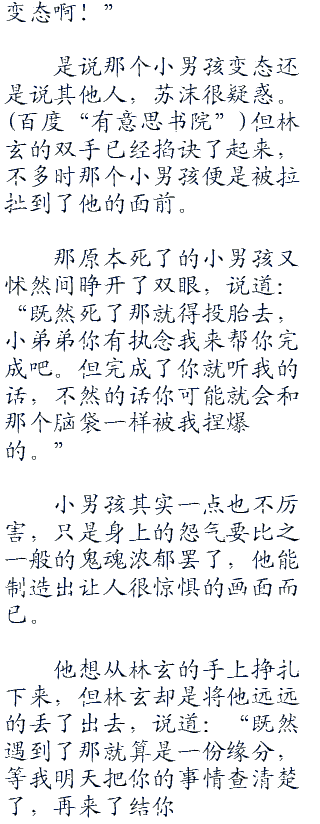 变态啊！”
是说那个小男孩变态还
是说其他人，苏沫很疑惑。
(百度“有意思书院”)但林
玄的双手已经掐诀了起来，
不多时那个小男孩便是被拉
扯到了他的面前。
那原本死了的小男孩又
怵然间睁开了双眼，说道：
“既然死了那就得投胎去，
小弟弟你有执念我来帮你完
成吧。但完成了你就听我的
话，不然的话你可能就会和
那个脑袋一样被我捏爆
的。”
小男孩其实一点也不厉
害，只是身上的怨气要比之
一般的鬼魂浓郁罢了，他能
制造出让人很惊惧的画面而
已。
他想从林玄的手上挣扎
下来，但林玄却是将他远远
的丢了出去，说道：“既然
遇到了那就算是一份缘分，
等我明天把你的事情查清楚
了，再来了结你